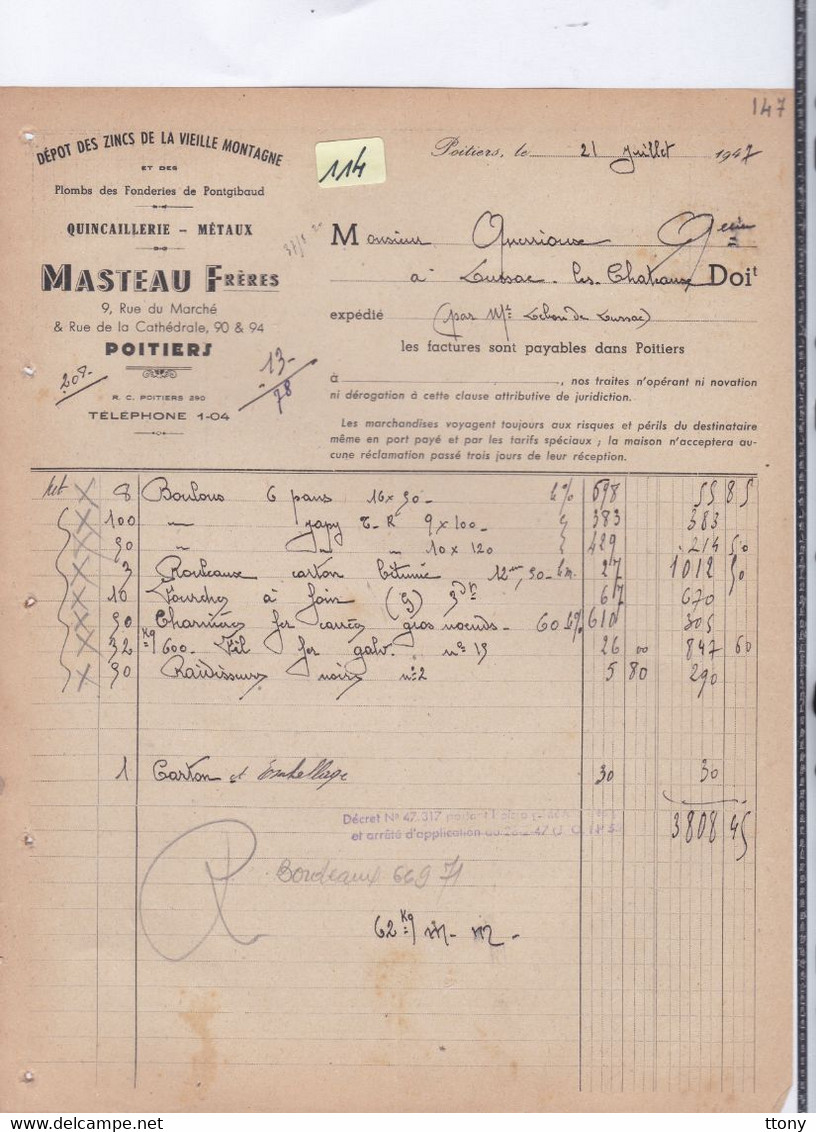 147
DÉPOT DES ZINCS DE LA VIEILLE MONTAGNE
ET DES
Plombs des Fonderies de Pontgibaud
QUINCAILLERIE - MÉTAUX
MASTEAU FRÈRES
9, Rue du Marché
& Rue de la Cathédrale, 90 & 94
POITIERS
R. C. POITIERS 290
TÉLÉPHONE 1-04
114
209-
13-
78
Poitiers, le 21 Juillet 1947
Monsieur Querrioux
à Lussac-les-Chateaux Doit
expédié (par Mt de Lussac)
les factures sont payables dans Poitiers
à , nos traites n'opérant ni novation
ni dérogation à cette clause attributive de juridiction.
Les marchandises voyagent toujours aux risques et périls du destinataire
même en port payé et par les tarifs spéciaux ; la maison n'acceptera au-
cune réclamation passé trois jours de leur réception.
8 Boulons 6 pans 16x90- % 698 55 85
100 " japy T.R 9x100- 383 383
50 " " " 10x120 429 214 50
3 Rouleaux carton bitumé 27 1012 50
10 Fourches à foin 67 670
50 Charnières fer carrées gros noeuds- 60 % 610 305
32 Kg 600 Fil fer galv. n° 15 26 00 847 60
50 Raidisseurs noirs n°2 5 80 290
1 Carton et Emballage 30 30
3808 45
Décret N° 47.317
et arrêté d'application
Bordeaux 669 71
62 Kg
ttony